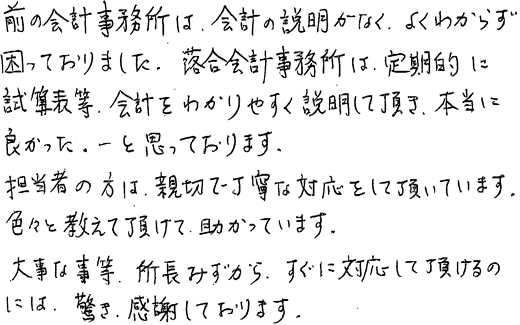 前の会計事務所は、会計の説明がなく、よくわからず
困っておりました。落合会計事務所は、定期的に
試算表等、会計をわかりやすく説明して頂き、本当に
良かった。ーと思っております。
担当者の方は、親切で丁寧な対応をして頂いています。
色々と教えて頂けて、助かっています。
大事な事等、所長みずから、すぐに対応して頂けるの
には、驚き、感謝しております。